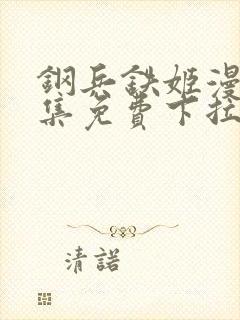 鋼兵鉄姬漫
集免費下拉
清諾